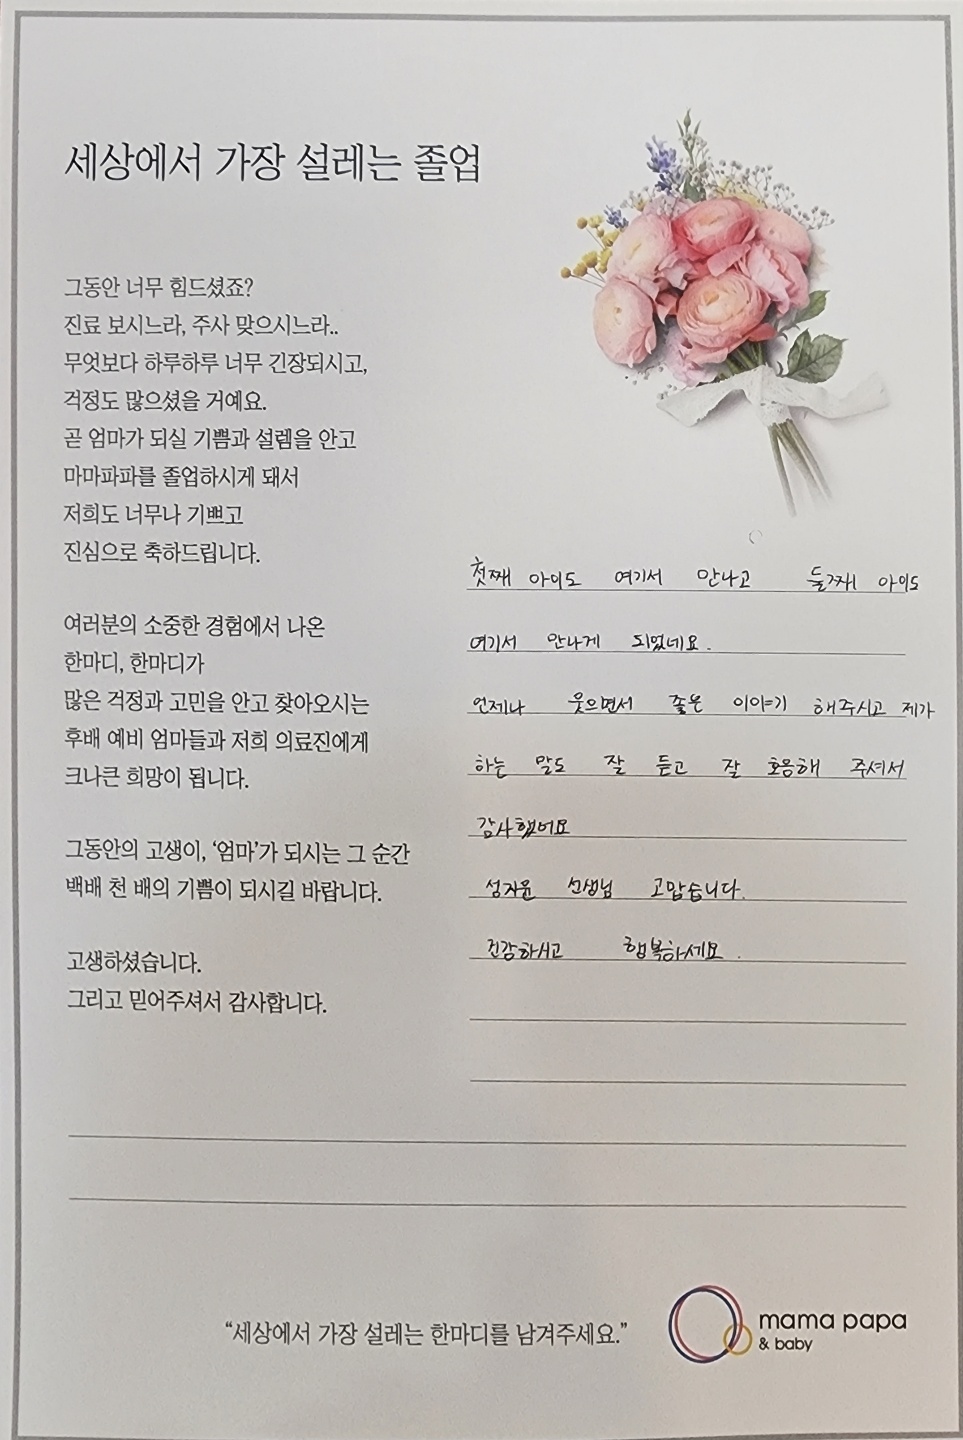 세상에서 가장 설레는 졸업
그동안 너무 힘드셨죠?
진료 보시느라, 주사 맞으시느라..
무엇보다 하루하루 너무 긴장되시고,
걱정도 많으셨을 거예요.
곧 엄마가 되실 기쁨과 설렘을 안고
마마파파를 졸업하시게 돼서
저희도 너무나 기쁘고
진심으로 축하드립니다.
여러분의 소중한 경험에서 나온
한마디, 한마디가
많은 걱정과 고민을 안고 찾아오시는
후배 예비 엄마들과 저희 의료진에게
크나큰 희망이 됩니다.
그동안의 고생이, ‘엄마’가 되시는 그 순간
백배 천 배의 기쁨이 되시길 바랍니다.
고생하셨습니다.
그리고 믿어주셔서 감사합니다.
첫째 아이도 여기서 만나고 둘째 아이도
여기서 만나게 되었네요.
언제나 웃으면서 좋은 이야기 해주시고 제가
하는 말도 잘 듣고 잘 호응해 주셔서
감사했어요
성지윤 선생님 고맙습니다.
건강하시고 행복하세요.
“세상에서 가장 설레는 한마디를 남겨주세요.”
mama papa
& baby